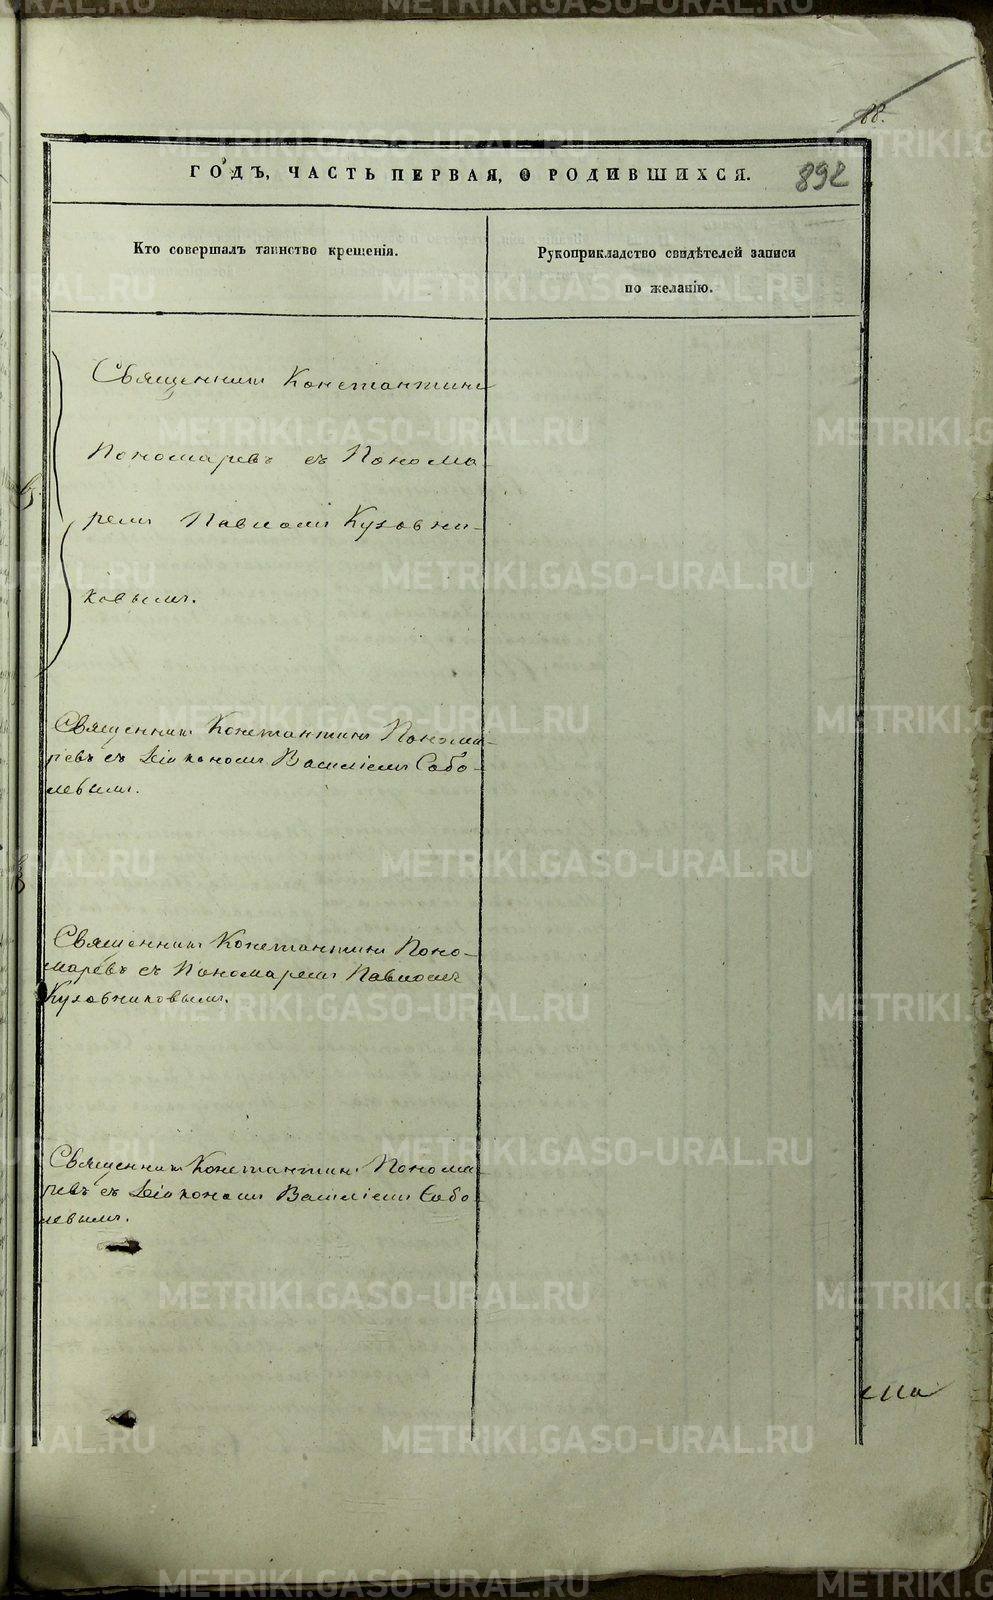 88.
ГОДЪ, ЧАСТЬ ПЕРВАЯ, О РОДИВШИХСЯ.
892
Кто совершалъ таинство крещенія.
Рукоприкладство свидѣтелей записи
по желанію.
Священникъ Константинъ
Пономаревъ съ Понома-
ремъ Павломъ Кузовни-
ковымъ.
Священникъ Константинъ Понома-
ревъ съ Діакономъ Василіемъ Собо-
левымъ.
Священникъ Константинъ Поно-
маревъ съ Пономаремъ Павломъ
Кузовниковымъ.
Священникъ Константинъ Понома-
ревъ съ Діакономъ Василіемъ Собо-
левымъ.
METRIKI.GASO-URAL.RU